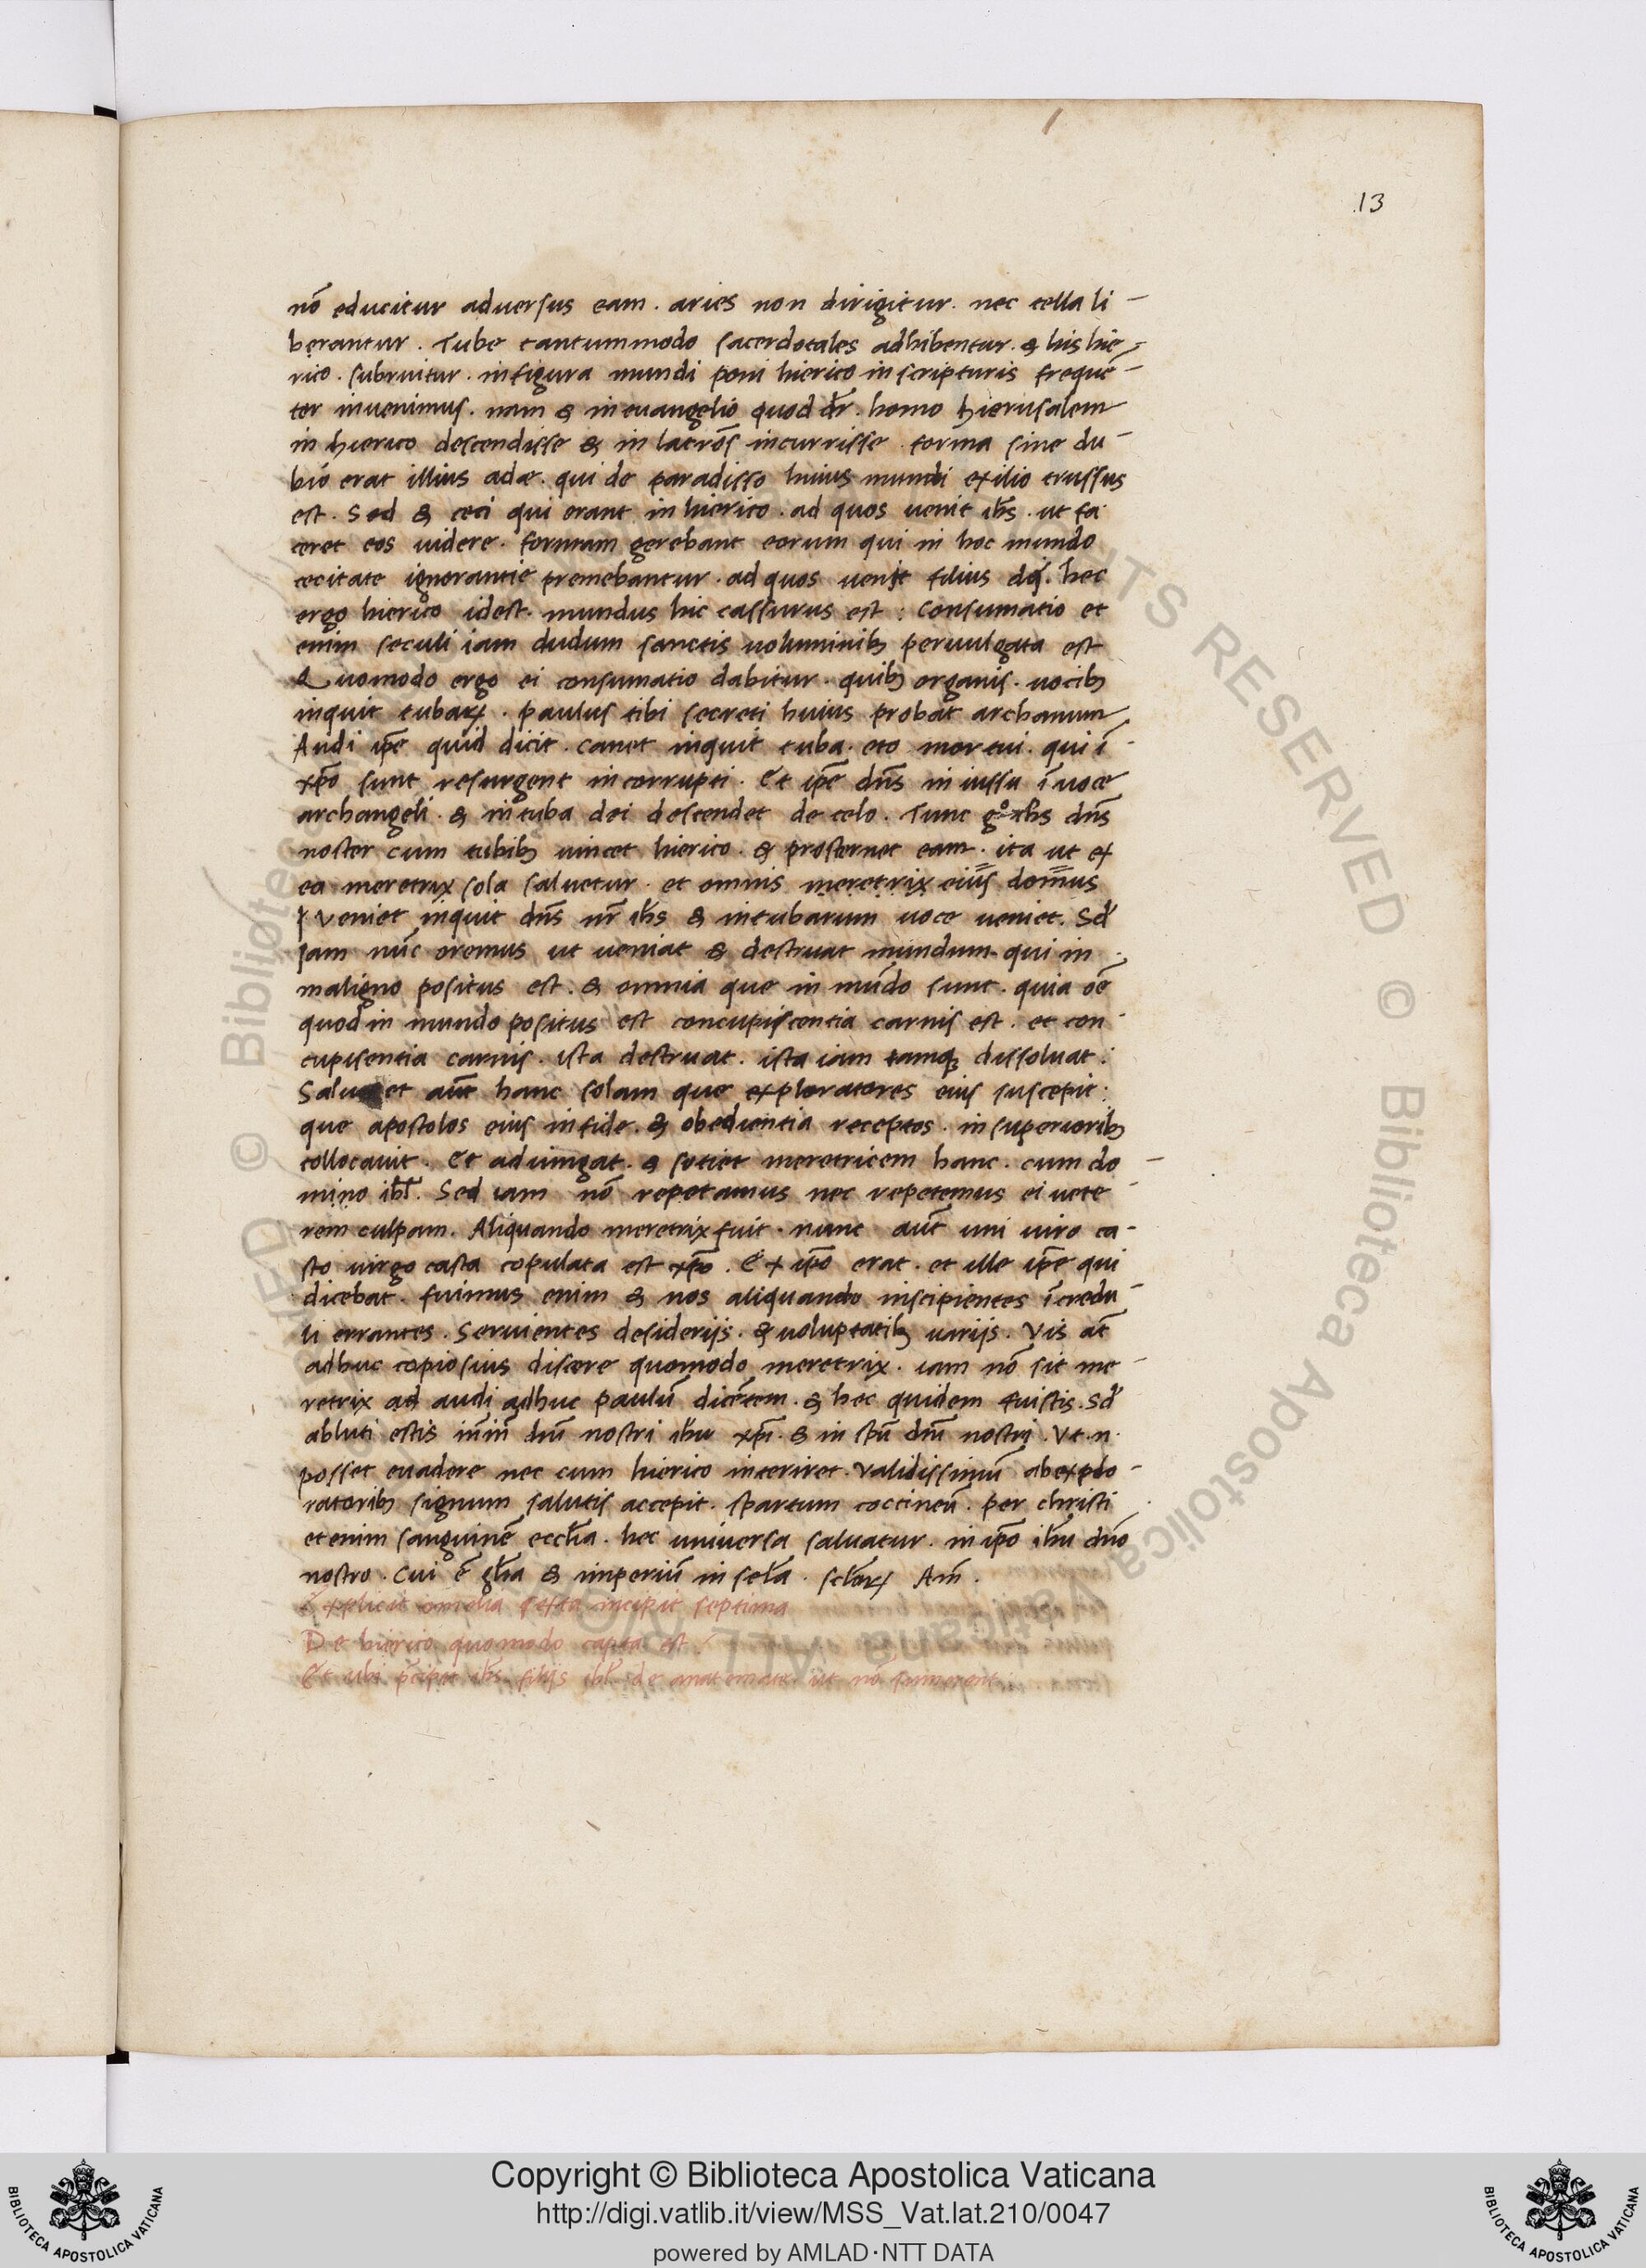 13
nō educitur aduersus eam . aries non dirigitur . nec tella li-
berantur . Tube tantummodo sacerdotales adhibentur . & his hie-
rico . subruitur . in figura mundi poni hierico in scripturis frequē-
ter inuenimus . nam & in euangelio quod dr̄ . homo hierusalem
in hierico descendisse & in latrōs incurrisse . forma sine du-
bió erat illius adæ . qui de paradisso huius mundi exilio trussus
est . Sed & ceci qui erant in hierico . ad quos uenit ih̄s . ut fa-
ceret eos uidere . formam gerebant eorum qui in hoc mundo
cecitate ignorantie premebantur . ad quos uenit filius dī . hec
ergo hierico idest . mundus hic cassurus est : Consumatio et
enim seculi iam dudum sanctis uoluminibꝫ peruulgata est
Quomodo ergo ei consumatio dabitur . quibꝫ organis . uocibꝫ
inquit tubaꝝ . paulus tibi secreti huius probat archanum
Audi ip̄e quid dicit . canet inquit tuba . eto mortui . qui ī
xp̄o sunt resurgent incorrupti . Et ip̄e dn̄s in iussu ī uoce
archangeli . & in tuba dei descendet de celo . Tunc gº ih̄s dn̄s
noster cum tubibꝫ uincet hierico . & prosternet eam . ita ut ex
ea meretrix sola saluetur . et omnis meretrix eius domus
Veniet inquit dn̄s nr̄ ih̄s & in tubarum uoce ueniet . Sd̄
jam nūc oremus ut ueniat & destruat mundum qui in
maligno positus est . & omnia que in mūdo sunt . quia oē
quod in mundo positus est concupiscentia carnis est . et con-
cupisentia carnis . ista destruat . ista iam tamqꝫ dissoluat :
Saluet aūt hanc solam que exploratores eius suscepit :
que apostolos eius in fide . & obedientia receptos . in superioribꝫ
collocauit . Et adiungat . & sotiet meretricem hanc . cum do-
mino ihl̄ . Sed iam nō repetamus nec repetemus ei uete-
rem culpam . Aliquando meretrix fuit . nunc aūt uni uiro ca-
sto uirgo casta copulata est xp̄o . Ex ip̄o erat . et ille ip̄e qui
dicebat . fuimus enim & nos aliquando inscipientes īcredu-
li errantes . Seruientes desiderijs . & uoluptatibꝫ uarijs . Vis at̄
adhuc copiosius discere quomodo meretrix . iam nō sit me-
retrix ad audi adhuc paulū dicētem . & hec quidem fuistis . Sd̄
abluti estis in nī dn̄i nostri ih̄u xp̄i . & in spū dn̄i nostri . Vt . n .
posset euadere nec cum hierico interiret . Validissimū ab explo-
ratoribꝫ signum salutis accepit . spartum coccineū . per christi
etenim sanguinē eccl̄ia . hec uniuersa saluatur . in ip̄o ih̄u dn̄o
nostro . Cui ē gl̄ia & imperiū in secl̄a . secl̄oꝝ Am̄ .
Explicit omelia sexta incipit septima
De hierico quomodo capta est
Et ubi p̄cipit ih̄s . filijs ihl̄ . de anatemate ut nō sumerent
Copyright © Biblioteca Apostolica Vaticana
http://digi.vatlib.it/view/MSS_Vat.lat.210/0047
powered by AMLAD·NTT DATA
BIBLIOTECA APOSTOLICA VATICANA
BIBLIOTECA APOSTOLICA VATICANA